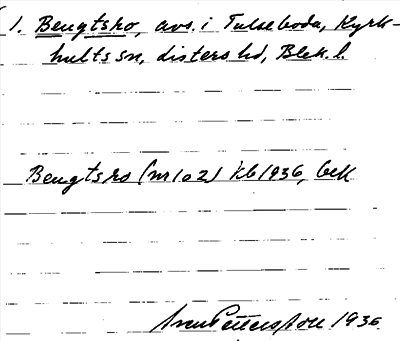 1. Bengtsro, avs. i Tulseboda, Kyrk-
hults sn, Listers hd, Blek. l.
Bengtsro (nr 102) Kb 1936, bek
Sven Pettersson 1936